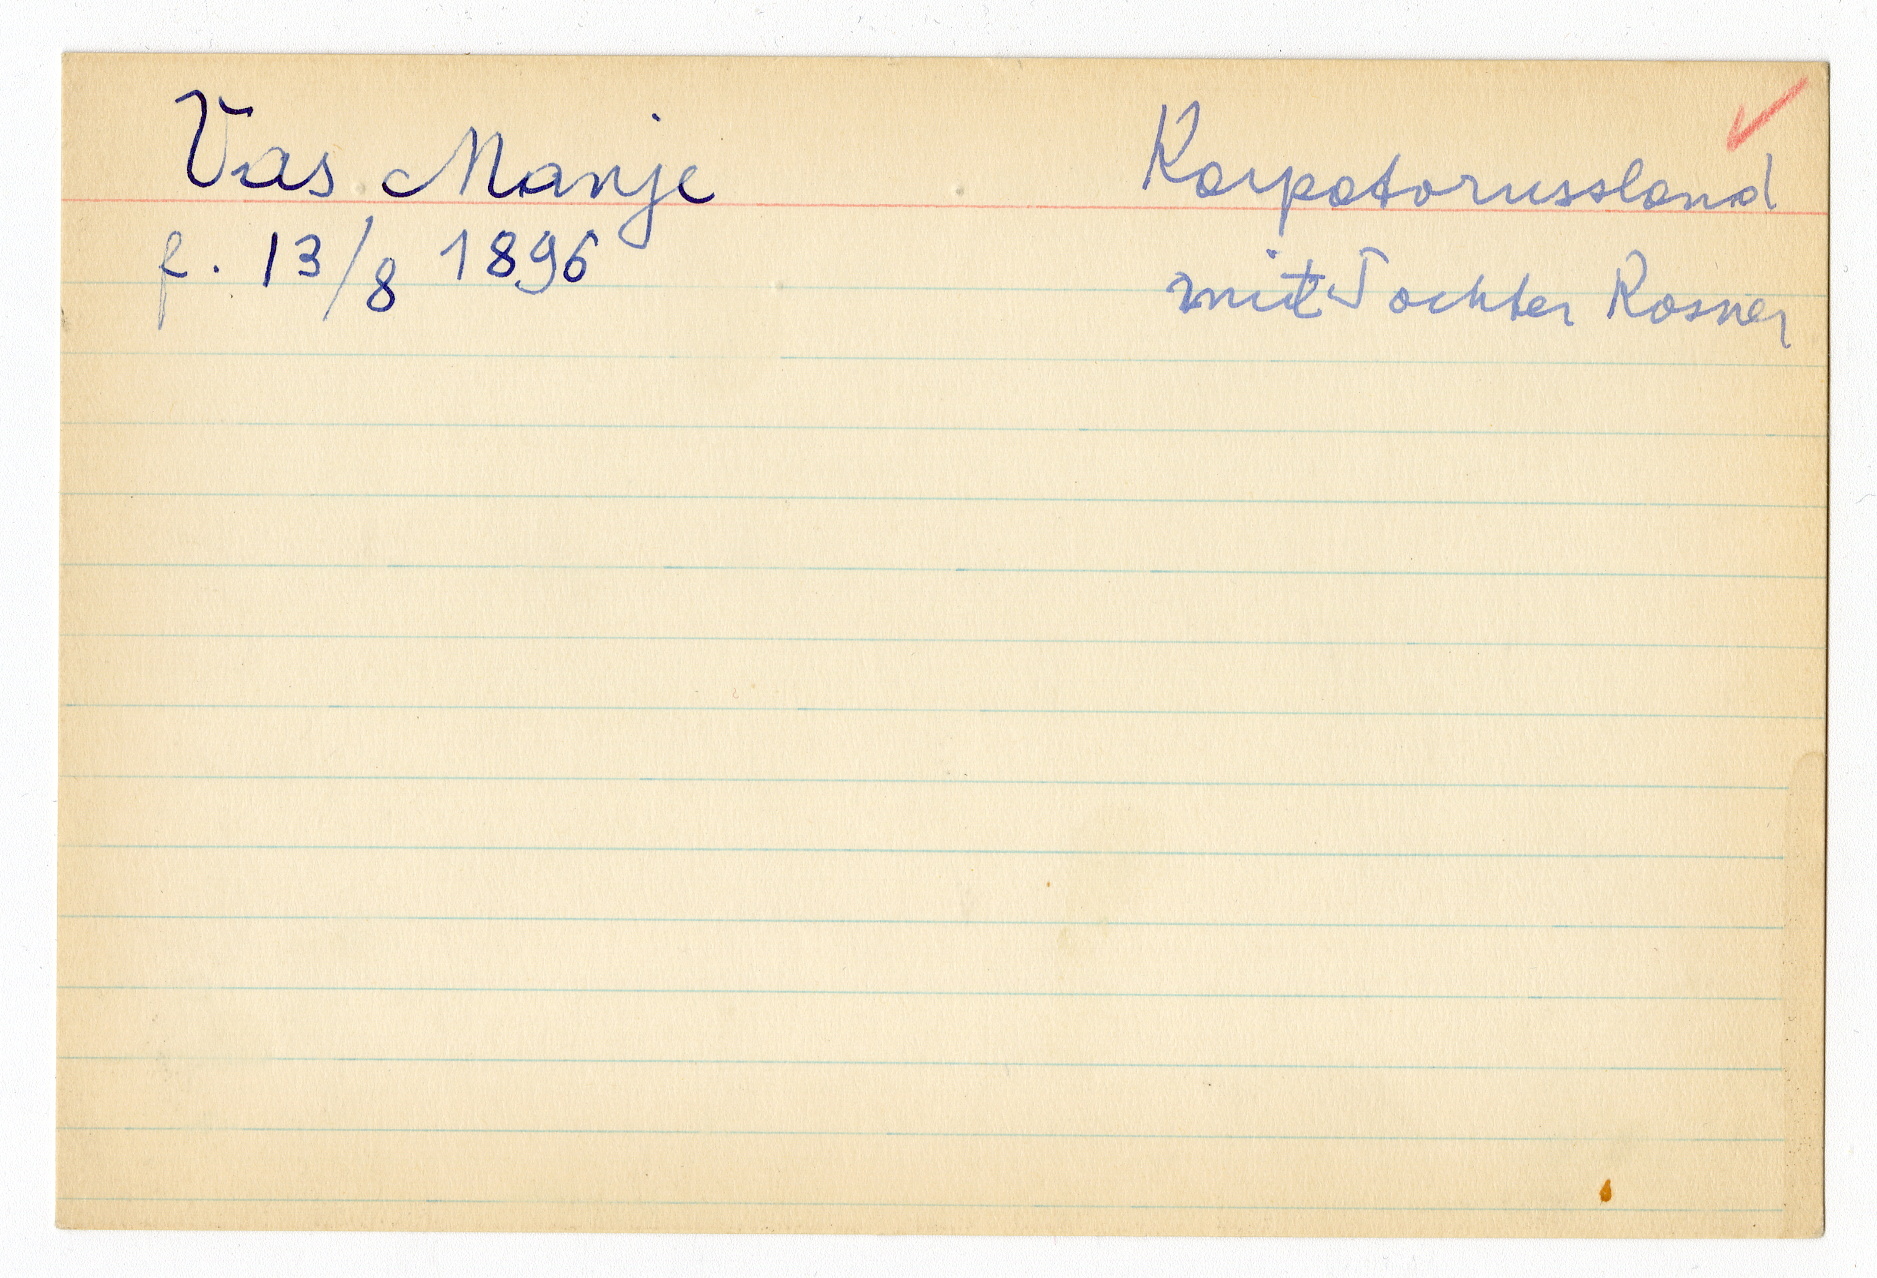 Vas Manje
Karpatorussland
f. 13/8 1896
mit Tochter Rosner